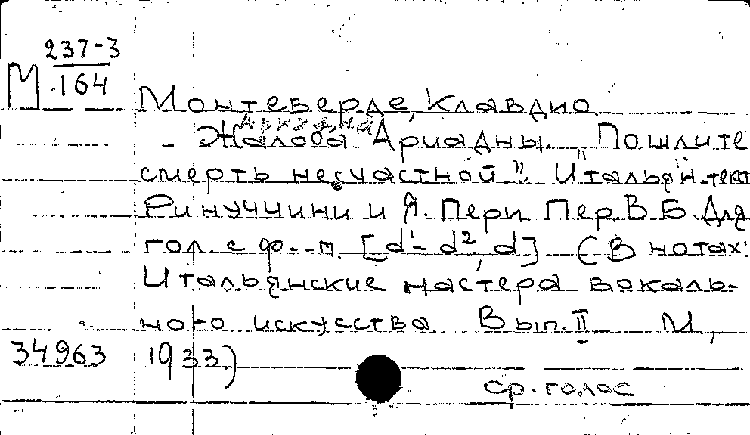 237-3
М 164
Монтеверде, Клавдио
- Жалоба Ариадны. "Пошлите
смерть несчастной". Итальян. текст
Ринуччини и Я. Пери. Пер. В. Б. Для
гол. с ф.-п. [d¹-d², d] (В нотах:
Итальянские мастера вокаль-
ного искусства. Вып. II М,
34963 1933)
ср. голос